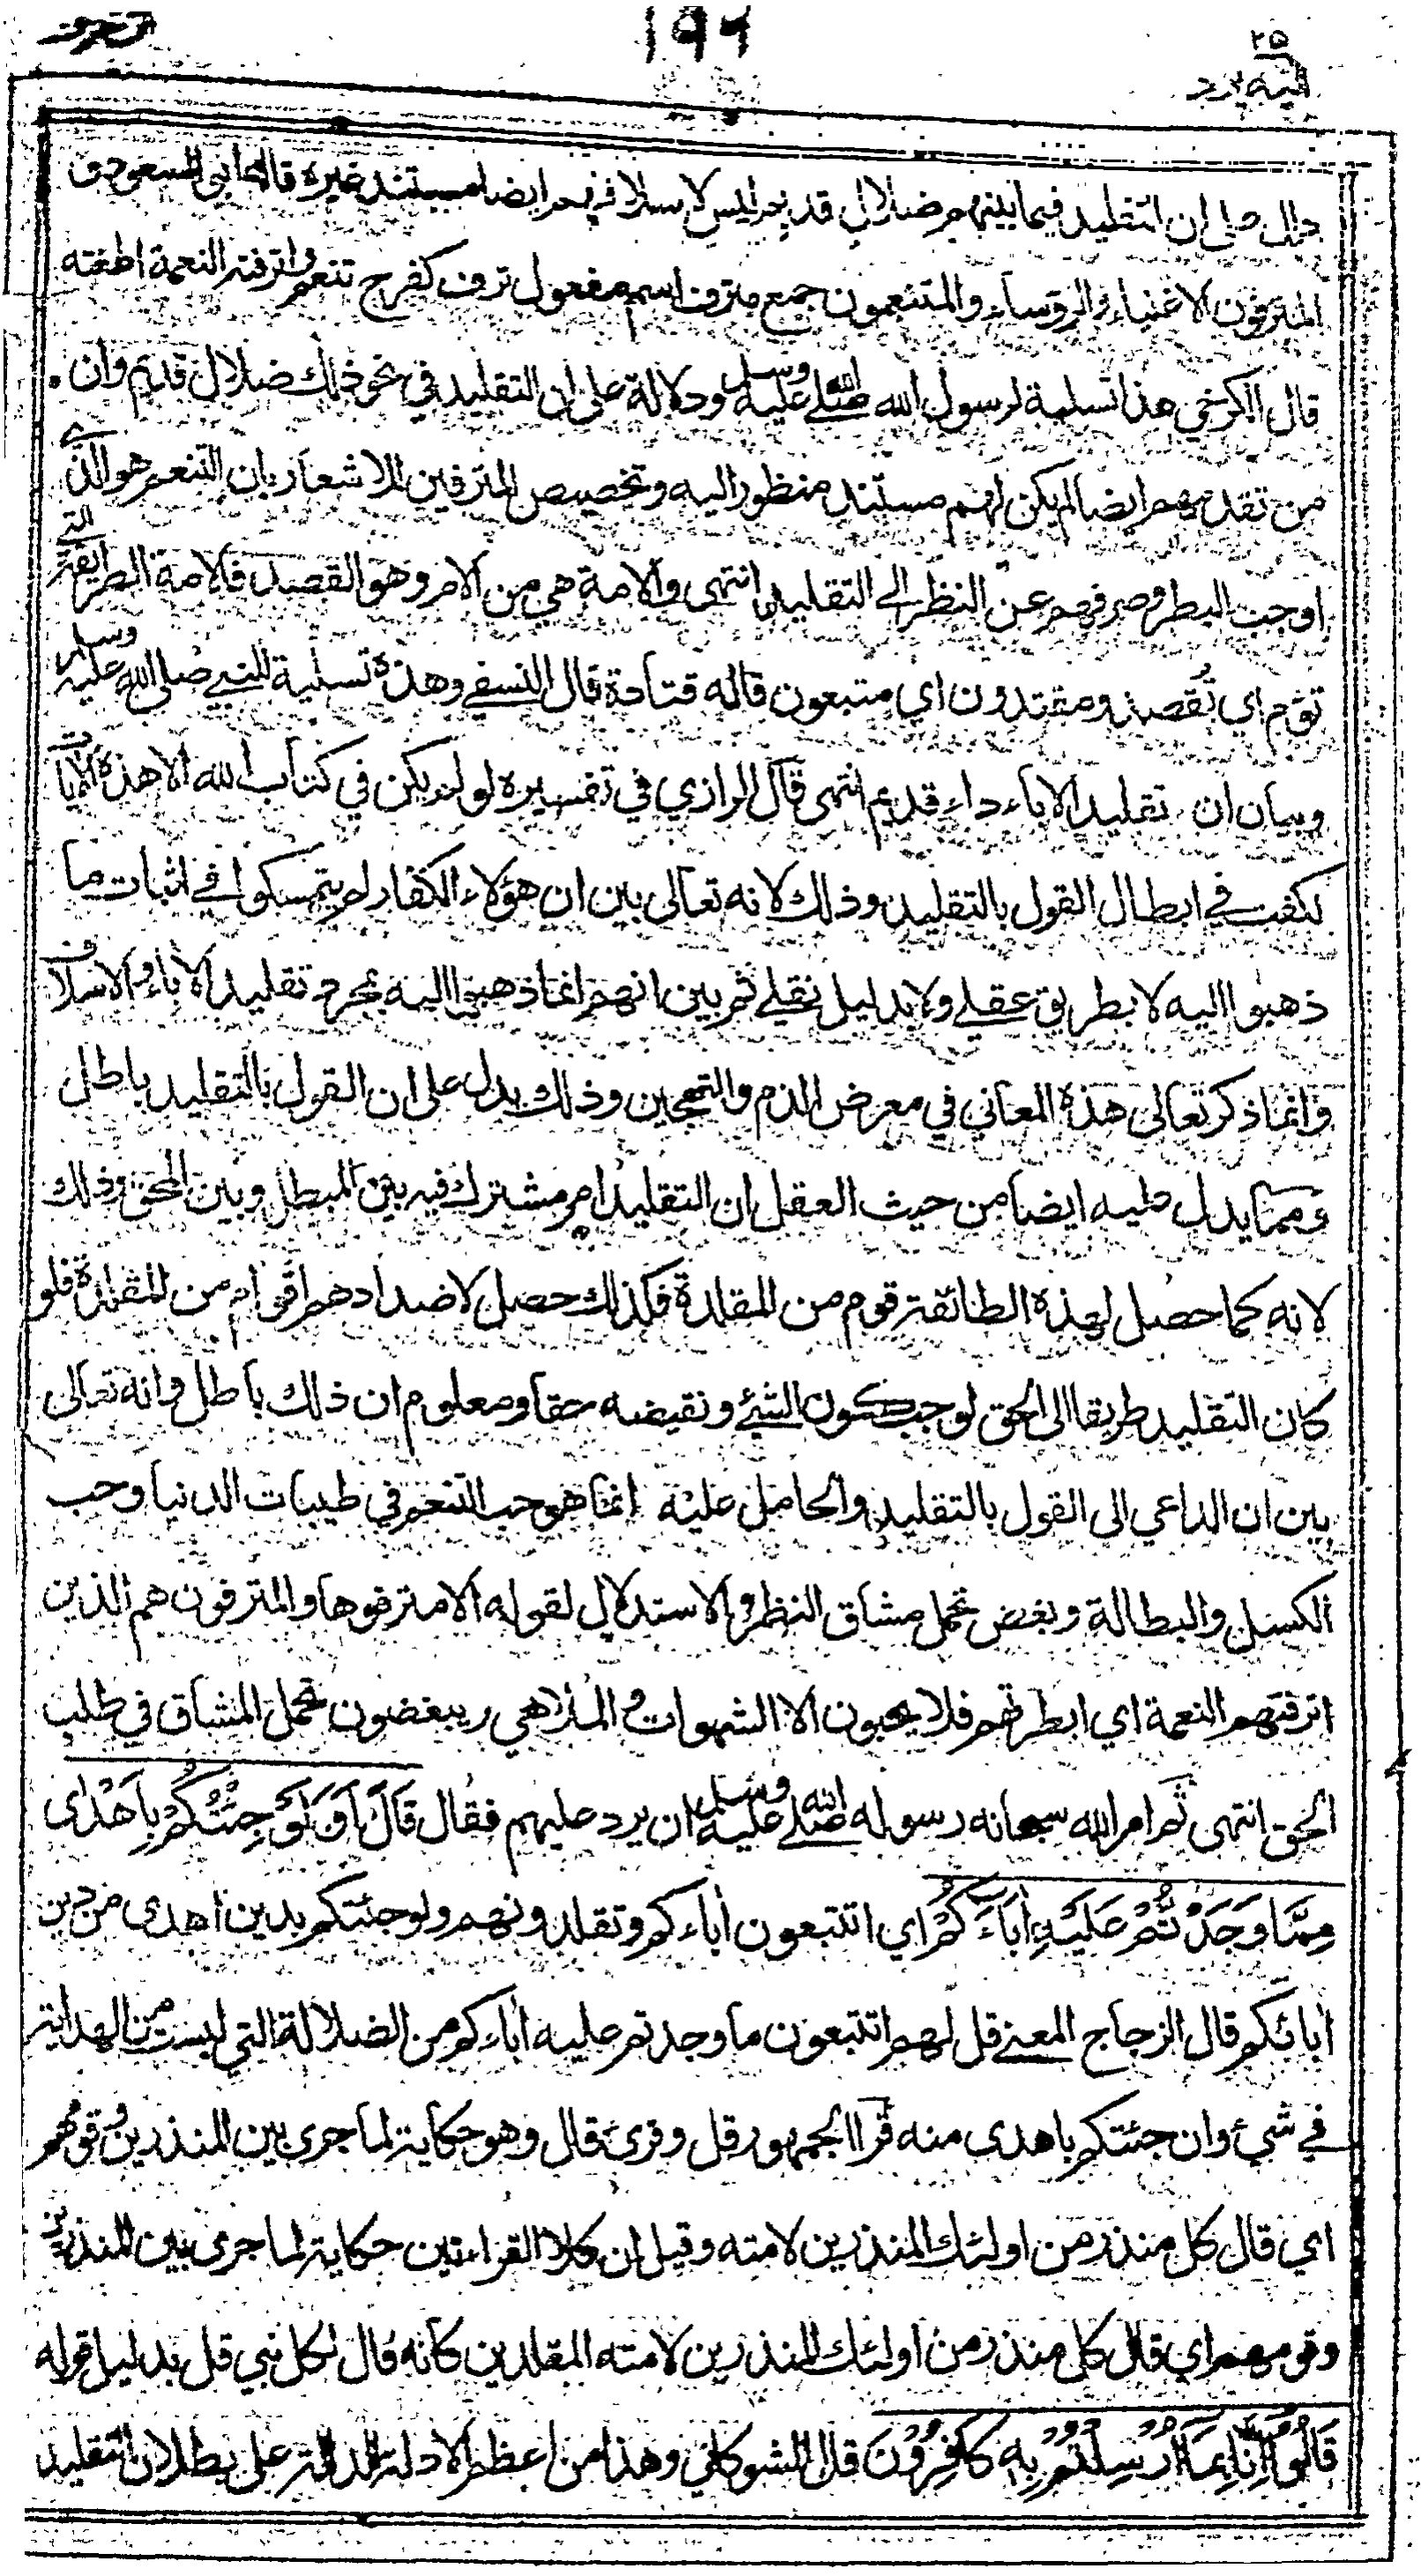 ٢٥
اليه يرد
١٩٩
الزخرف
دال على ان التقليد فيما بينهم ضلال قديم ليس لاسلافهم ايضا مستند غيره قاله ابو السعود ق
المترفون الاغنياء والروساء والمتنعمون جمع مترف اسم مفعول ترف كفرح تنعم واترفته النعمة اطغته
قال الكرخي هذا تسلية لرسول الله صلى الله عليه وسلم ودلالة على ان التقليد في نحو ذلك ضلال قديم وان
من تقدمهم ايضا لم يكن لهم مستند منظور اليه وتخصيص المترفين للاشعار بان التنعم هو الذي
اوجب البطر وصرفهم عن النظر الى التقليد انتهى والامة هي من الام وهو القصد فالامة الطريقة التي
تؤم اي تقصد ومقتدون اي متبعون قاله قتادة قال النسفي وهذه تسلية للنبي صلى الله عليه وسلم
وبيان ان تقليد الاباء داء قديم انتهى قال الرازي في تفسيره لو لم يكن في كتاب الله الا هذه الايات
لكفت في ابطال القول بالتقليد وذلك لانه تعالى بين ان هؤلاء الكفار لم يتمسكوا في اثبات ما
ذهبوا اليه لا بطريق عقلي ولا بدليل نقلي ثم بين انهم انما ذهبوا اليه بمجرد تقليد الاباء والاسلاف
وانما ذكر تعالى هذه المعاني في معرض الذم والتهجين وذلك يدل على ان القول بالتقليد باطل
ومما يدل عليه ايضا من حيث العقل ان التقليد امر مشترك فيه بين المبطل وبين المحق وذلك
لانه كما حصل لهذه الطائفة قوم من المقلدة فكذلك حصل لاضدادهم اقوام من المقلدة فلو
كان التقليد طريقا الى الحق لوجب كون الشئ ونقيضه حقا ومعلوم ان ذلك باطل وانه تعالى
بين ان الداعي الى القول بالتقليد والحامل عليه انما هو حب التنعم في طيبات الدنيا وحب
الكسل والبطالة وبغض تحمل مشاق النظر والاستدلال لقوله الا مترفوها والمترفون هم الذين
اترفتهم النعمة اي ابطرتهم فلا يحبون الا الشهوات والملاهي ويبغضون تحمل المشاق في طلب
الحق انتهى ثم امر الله سبحانه رسوله صلى الله عليه وسلم ان يرد عليهم فقال قَالَ اَوَ لَوْ جِئْتُكُمْ بِاَهْدٰى
مِمَّا وَجَدْتُّمْ عَلَيْهِ اٰبَاءَكُمْ اي اتتبعون اباءكم وتقلدونهم ولو جئتكم بدين اهدى من دين
ابائكم قال الزجاج المعنى قل لهم اتتبعون ما وجدتم عليه اباءكم من الضلالة التي ليست من الهداية
في شئ وان جئتكم باهدى منه قرا الجمهور قل وقرئ قال وهو حكاية لما جرى بين المنذرين وقومهم
اي قال كل منذر من اولئك المنذرين لامته وقيل ان كلا القراءتين حكاية لما جرى بين المنذرين
وقومهم اي قال كل منذر من اولئك المنذرين لامته المقلدين كانه قال لكل نبي قل بدليل قوله
قَالُوْا اِنَّا بِمَا اُرْسِلْتُمْ بِهِ كَافِرُوْنَ قال الشوكاني وهذا من اعظم الادلة الدالة على بطلان التقليد